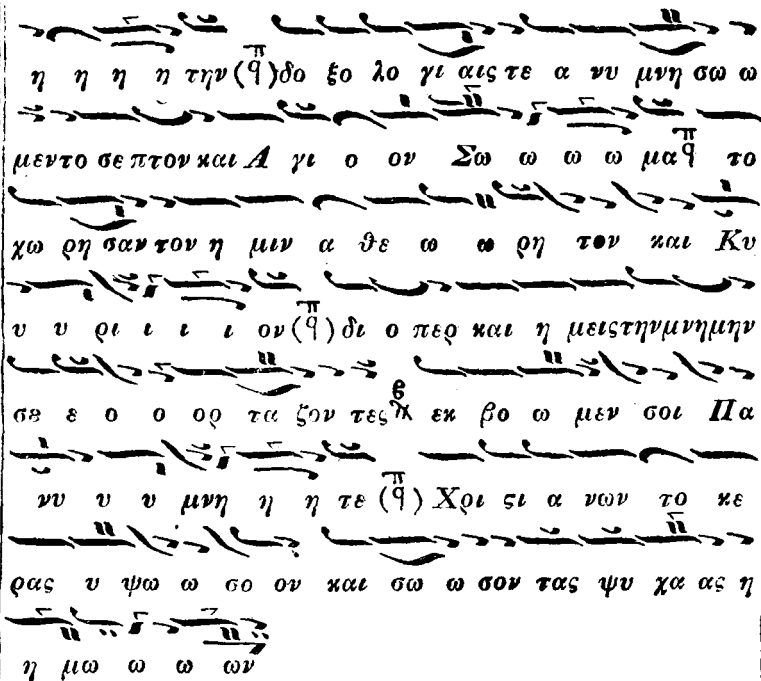 η η η η την (π ϥ) δο ξο λο γι αις τε α νυ μνη σω ω
μεν το σε πτον και Α γι ο ον Σω ω ω ω μα π ϥ το
χω ρη σαν τον η μιν α θε ω ω ρη τον και Κυ
υ υ ρι ι ι ι ον (π ϥ) δι ο περ και η μεις την μνη μην
σε ε ο ο ορ τα ζον τες εκ βο ω μεν σοι Πα
νυ υ υ μνη η η τε (π ϥ) Χρι ςι α νων το κε
ρας υ ψω ω σο ον και σω ω σον τας ψυ χα ας η
η μω ω ω ων